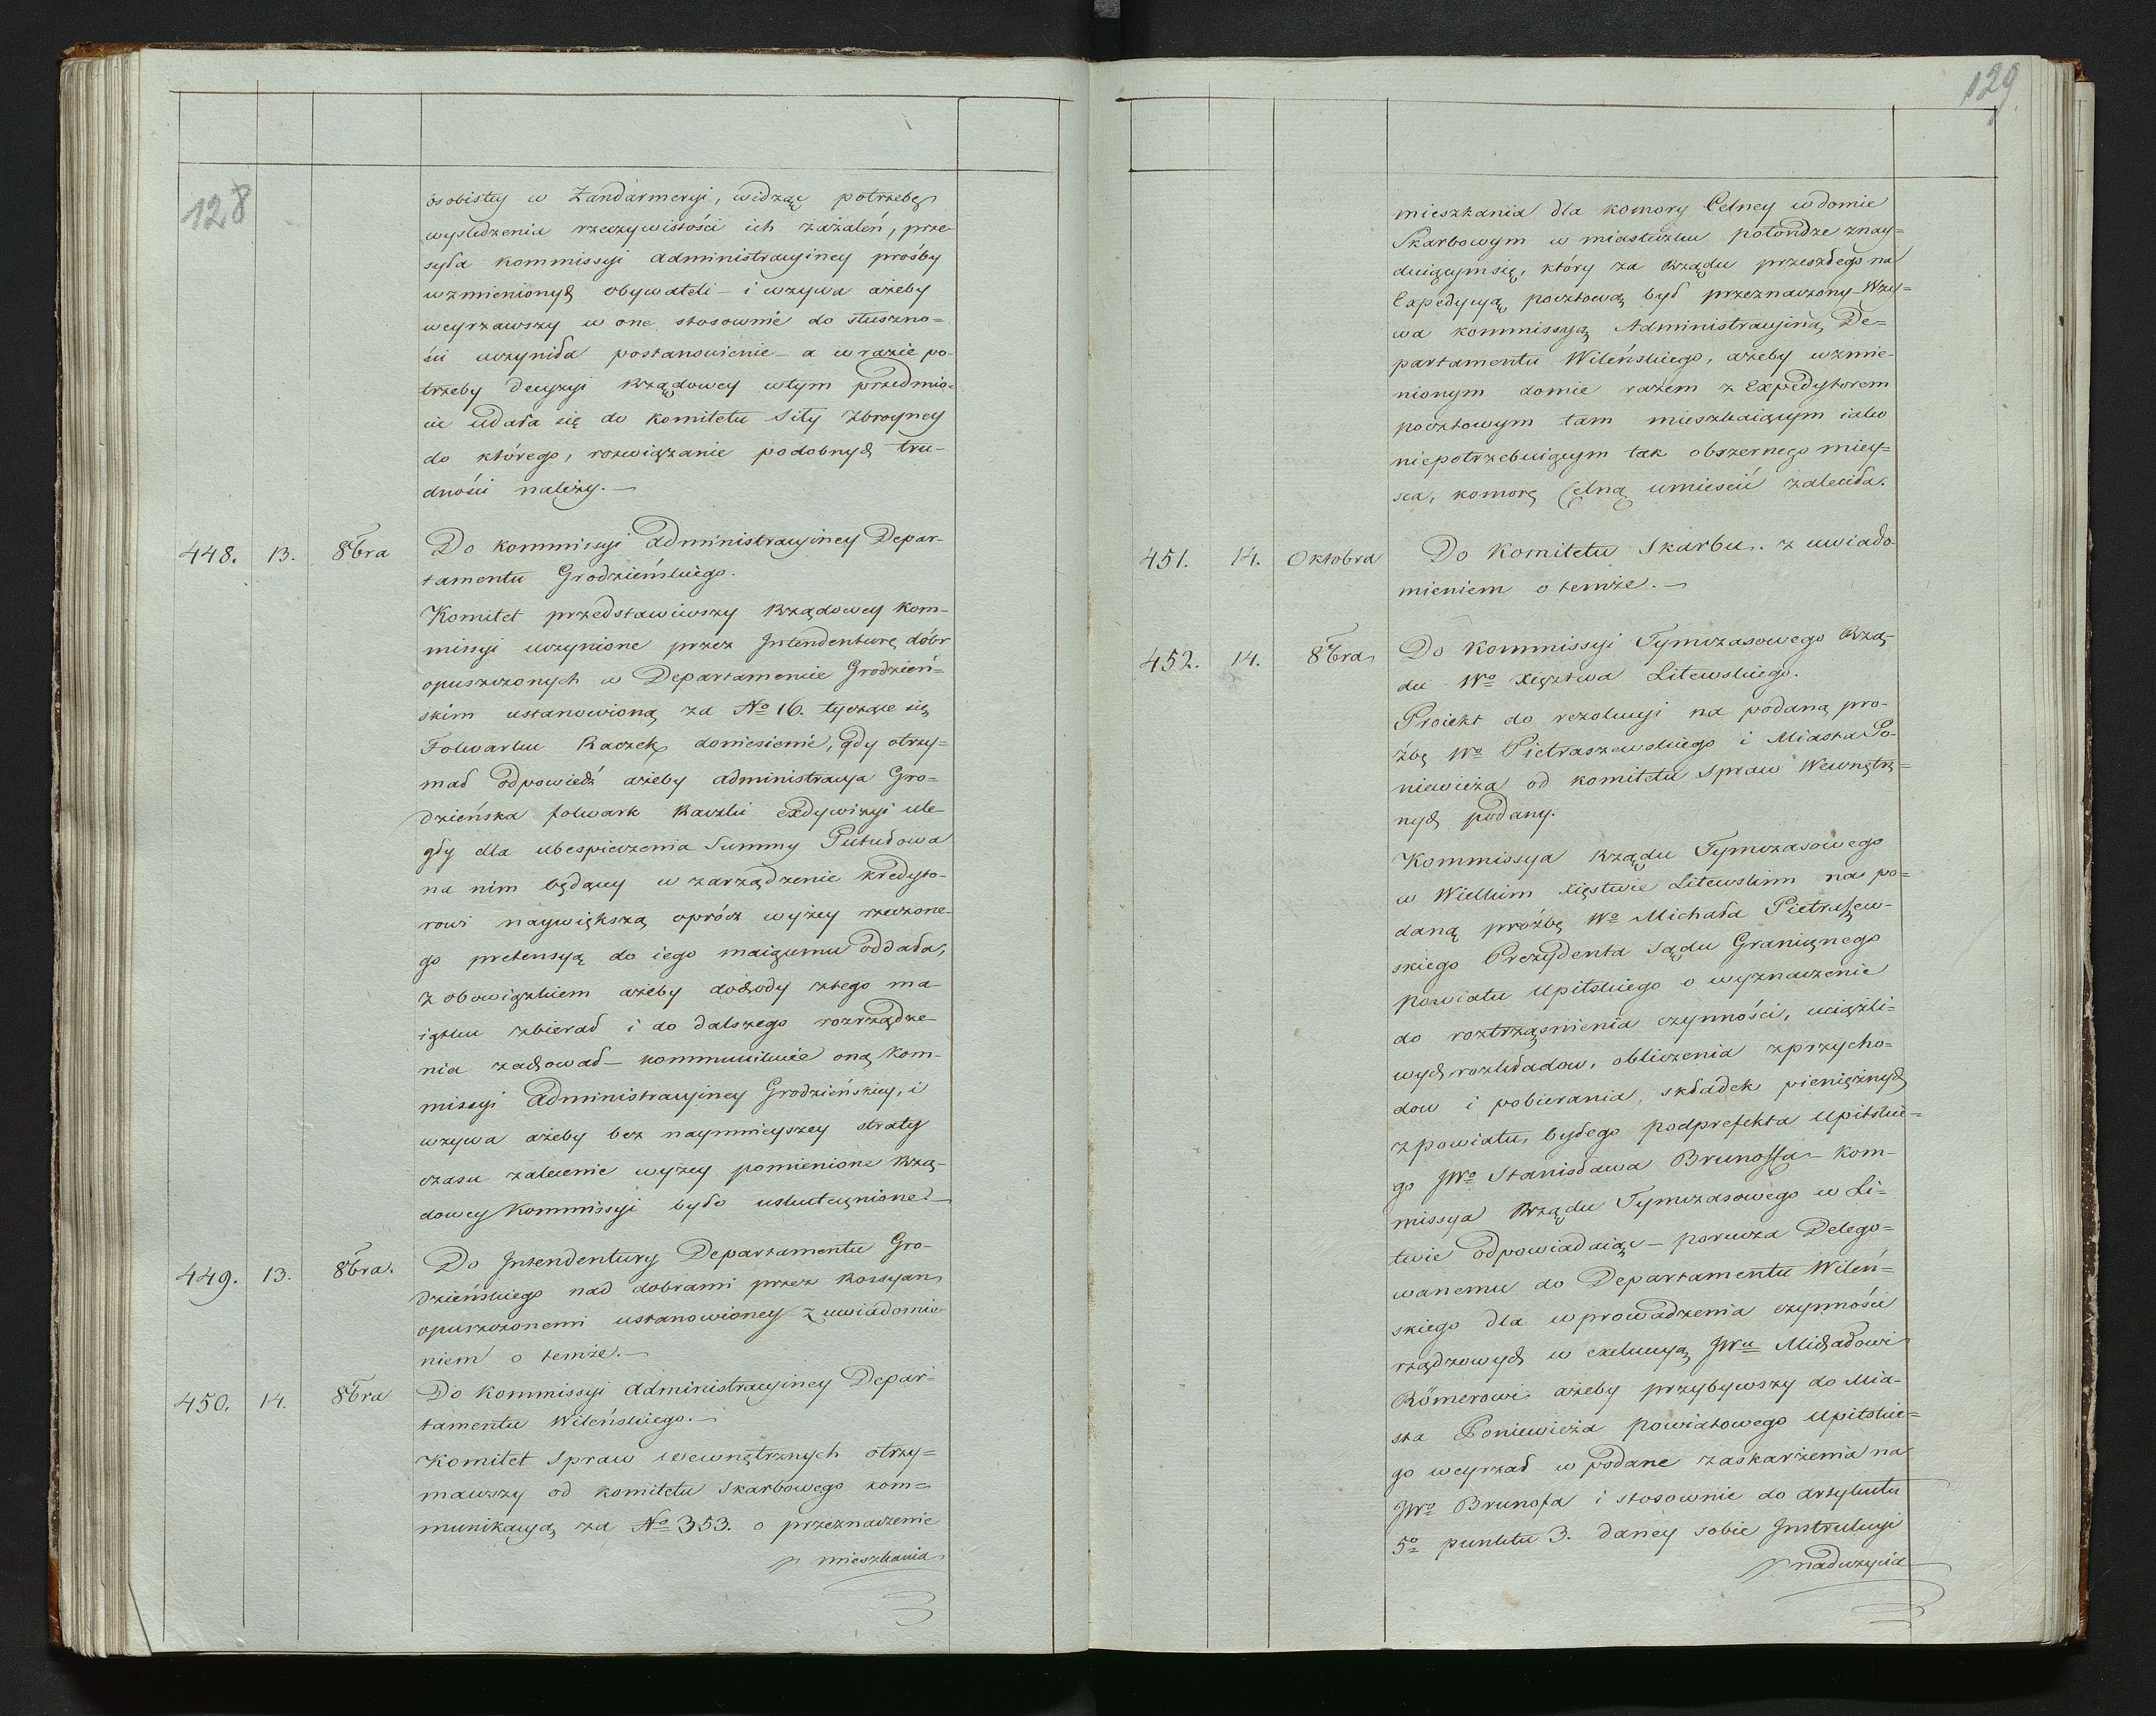 128
osobistey w Żandarmeryi, widząc potrzebę
wyśledzenia rzeczywistości ich zażaleń, prze-
syła kommissyi administracyiney prośby
wzmienionych obywateli – i wzywa ażeby
weyrzawszy w one stosownie do słuszno=
ści uczyniła postanowienie – a w razie po-
trzeby decyzyi Rządowey wtym przedmio=
cie udała się do komitetu Siły Zbroyney
do którego, rozwiązanie podobnych tru-
dności należy. –
448. 13. 8bra Do kommissyi Administracyiney Depar-
tamentu Grodzieńskiego.
Komitet przedstawiwszy Rządowey kom-
missyi uczynione przez Intendenturę dóbr
opuszczonych w Departamencie Grodzień=
skim ustanowioną za No 16. tyczące się
Folwarku Raczek doniesienie, gdy otrzy=
mał odpowiedź ażeby administracya Gro=
dzieńska folwark Raczki exdywizyi ule-
gły dla ubespieczenia Summy
na nim będącey w zarządzenie kredyto-
rowi naywiększą oprócz wyżey rzeczone-
go pretensyą do iego maiącemu oddała,
z obowiązkiem ażeby dochody ztego ma-
iątku zbierał i do dalszego rozrządze-
nia zachował – kommunikuie oną Kom-
missyi Administracyiney Grodzieńskiey, i
wzywa ażeby bez naymnieyszey straty
czasu zalecenie wyżey pomienione Rzą-
dowey Kommissyi było uskutecznione. –
449. 13. 8bra. Do Intendentury Departamentu Gro-
dzieńskiego nad dobrami przez Rossyan
opuszczonemi ustanowioney z uwiadomie-
niem o temże. –
450. 14. 8bra Do Kommissyi Administracyiney Depar-
tamentu Wileńskiego. –
Komitet Spraw wewnętrznych otrzy=
mawszy od komitetu Skarbowego kom=
munikacyą za No 353. o przeznaczenie
mieszkania
129
mieszkania dla komory Celney w domie
Skarbowym w miasteczku Połondze znay=
duiącym się, który za Rządu przeszłego na
Expedycyą pocztową był przeznaczony – Wzy=
wa kommissyą Administracyiną De=
partamentu Wileńskiego, ażeby wzmie-
nionym domie razem z Expedytorem
pocztowym tam mieszkaiącym iako
niepotrzebuiącym tak obszernego miey=
sca, komorę Celną umieścić zaleciła.
451. 14. Oktobra Do Komitetu Skarbu. z uwiado-
mieniem o temże. –
452. 14. 8bra Do Kommissyi Tymczasowego Rzą-
du Wo Xięztwa Litewskiego.
Proiekt do rezolucyi na podaną pro-
źbę Wo Pietraszewskiego i Miasta Po-
niewieża od komitetu Spraw Wewnętrz=
nych podany.
Kommissya Rządu Tymczasowego
w Wielkim Xięstwie Litewskim na po=
daną prożbę Wo Michała Pietraszew-
skiego Prezydenta Sądu Granicznego
powiatu Upitskiego o wyznaczenie
do roztrząśnienia czynności, uciążli=
wych rozkładow, obliczenia z przycho=
dow i pobierania, składek pieniężnych
z powiatu, byłego podprefekta Upitskie=
go JWo Stanisława Brunoffa – Kom-
missya Rządu Tymczasowego w Li=
twie odpowiadaiąc – porucza Delego=
wanemu do Departamentu Wileń=
skiego dla wprowadzenia czynności
rządzowych w exekucyą JWu Michałowi
Römerowi ażeby przybywszy do Mia-
sta Poniewieża powiatowego Upitskie=
go weyrzał w podane zaskarżenia na
JWo Brunoffa i stosownie do artykułu
5o punktu 3. daney sobie Instrukcyi
nadużycia